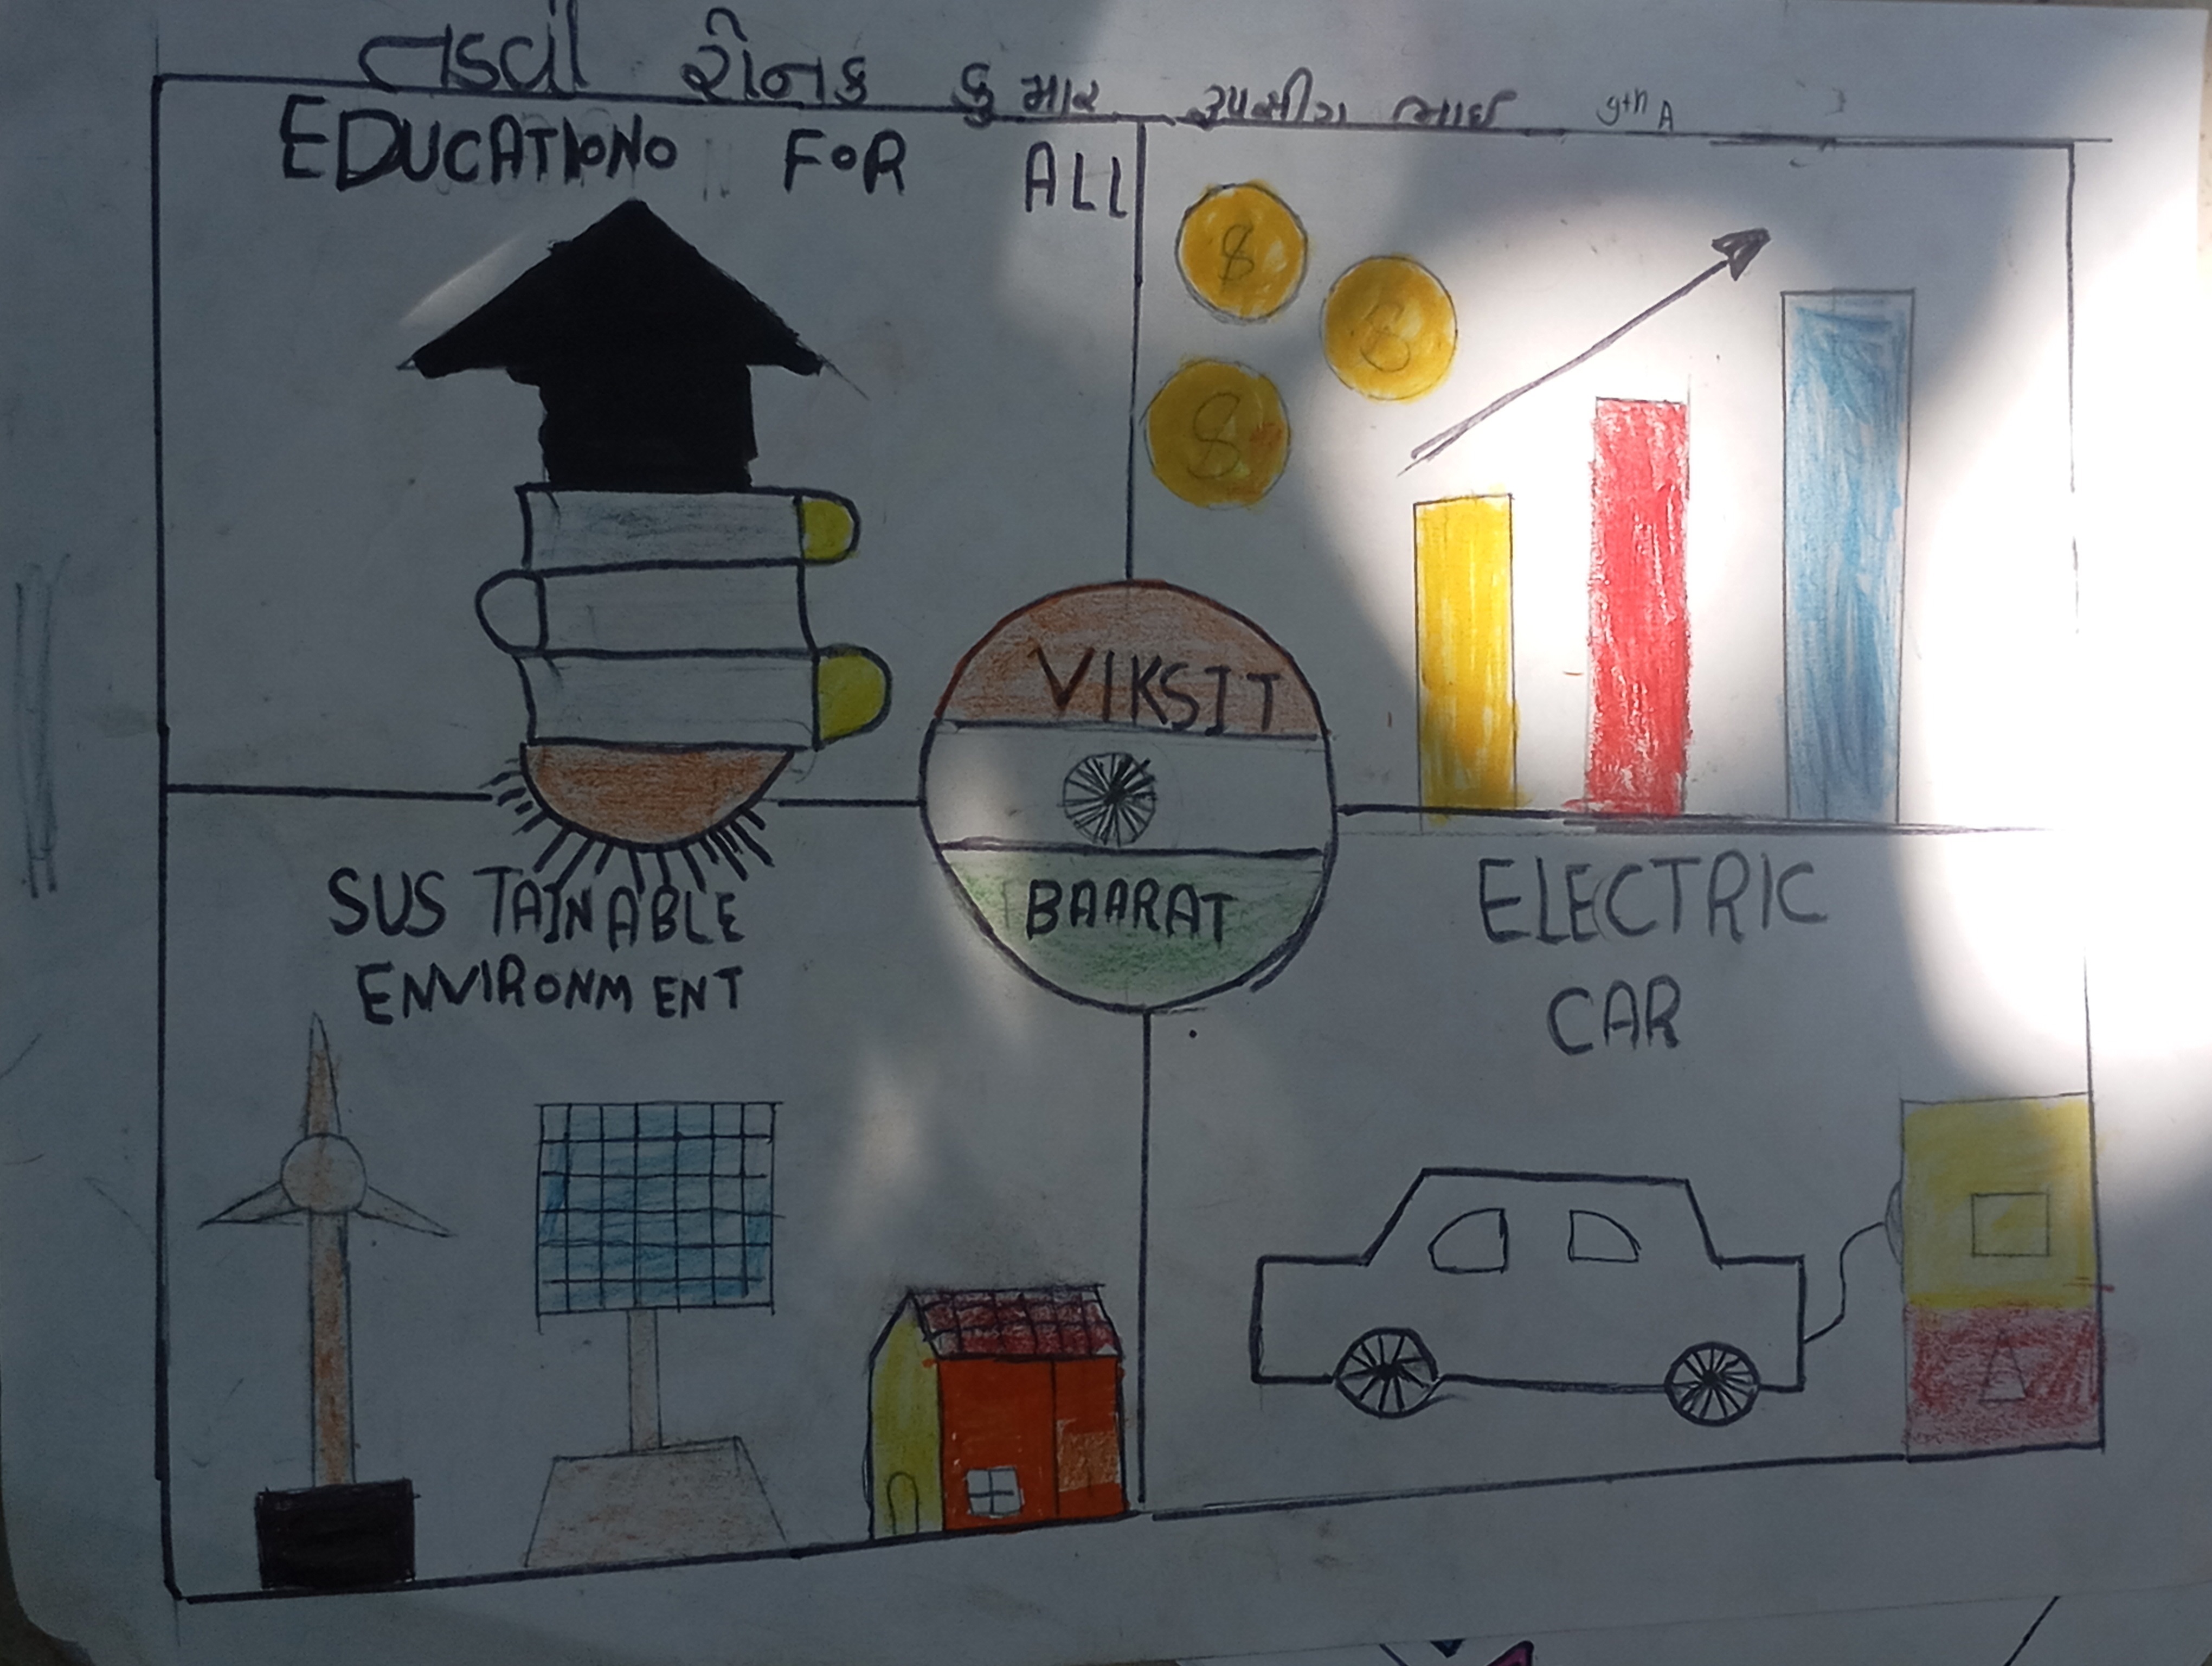 તડવી રોનક કુમાર રૂપસીંગ ભાઈ 9th A
EDUCATIONO FOR ALL
$
$
$
VIKSIT
BAARAT
SUSTAINABLE
ENVIRONMENT
ELECTRIC
CAR